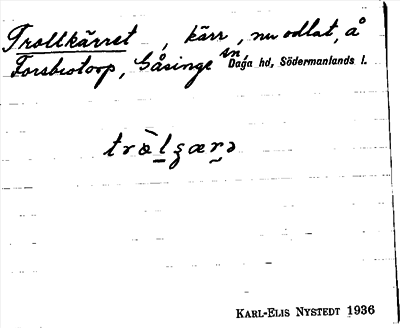 Trollkärret, kärr, nu odlat, å
Forsbrotorp, Gåsinge sn, Daga hd, Södermanlands l.
trὰlʒærə
KARL-ELIS NYSTEDT 1936